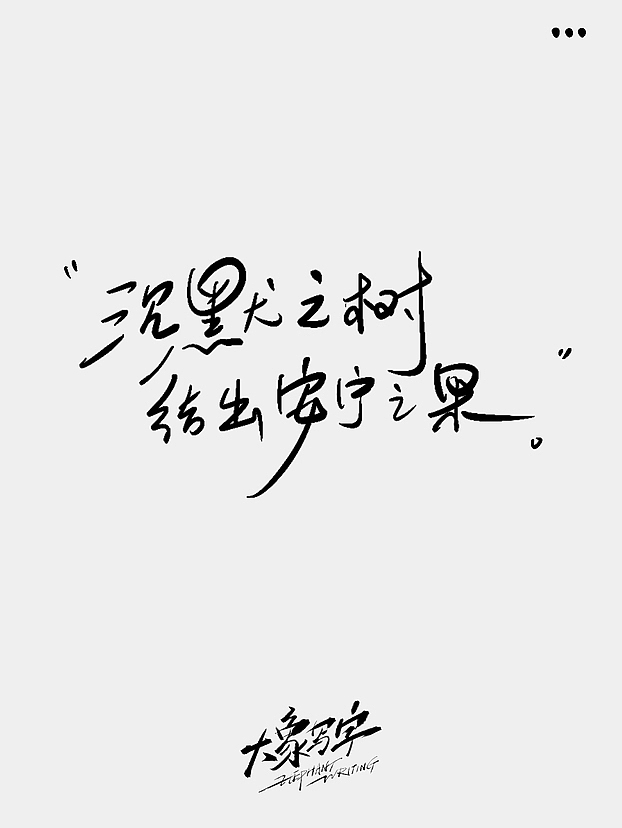 “沉默之树
结出安宁之果。”
大象写字
ELEPHANT WRITING